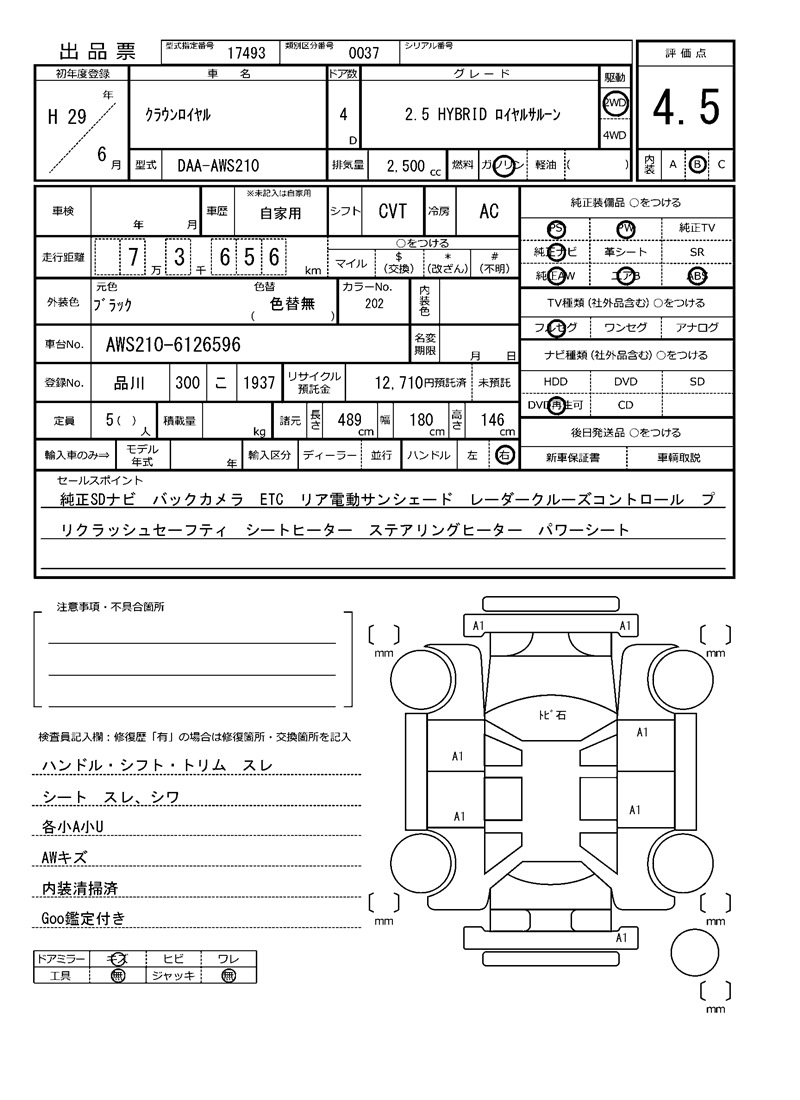 出品票 型式指定番号 17493 類別区分番号 0037 シリアル番号
評価点
初年度登録 車 名 ドア数 グレード 駆動
H 29 年 6 月 クラウンロイヤル 4 D 2.5 HYBRID ロイヤルサルーン 2WD 4WD
4.5
型式 DAA-AWS210 排気量 2,500 cc 燃料 ガソリン 軽油 ( )
内装 A B C
車検 年 月 車歴 ※未記入は自家用 自家用 シフト CVT 冷房 AC
走行距離 7 万 3 千 6 5 6 km
○をつける
マイル $ (交換) * (改ざん) # (不明)
外装色 元色 ブラック 色替 ( 色替無 ) カラーNo. 202 内装色
車台No. AWS210-6126596 名変期限 月 日
登録No. 品川 300 こ 1937 リサイクル預託金 12,710円預託済 未預託
定員 5( ) 人 積載量 kg 諸元 長さ 489 cm 幅 180 cm 高さ 146 cm
輸入車のみ⇒ モデル年式 年 輸入区分 ディーラー 並行 ハンドル 左 右
純正装備品 ○をつける
PS PW 純正TV
純正ナビ 革シート SR
純正AW エアB ABS
TV種類(社外品含む) ○をつける
フルセグ ワンセグ アナログ
ナビ種類(社外品含む) ○をつける
HDD DVD SD
DVD再生可 CD
後日発送品 ○をつける
新車保証書 車輌取説
セールスポイント
純正SDナビ バックカメラ ETC リア電動サンシェード レーダークルーズコントロール プ
リクラッシュセーフティ シートヒーター ステアリングヒーター パワーシート
注意事項・不具合箇所
検査員記入欄:修復歴「有」の場合は修復箇所・交換箇所を記入
ハンドル・シフト・トリム スレ
シート スレ、シワ
各小A小U
AWキズ
内装清掃済
Goo鑑定付き
ドアミラー キズ ヒビ ワレ
工具 無 ジャッキ 無
A1 A1
mm mm
トビ石
A1
A1
A1
A1
mm mm
A1
mm